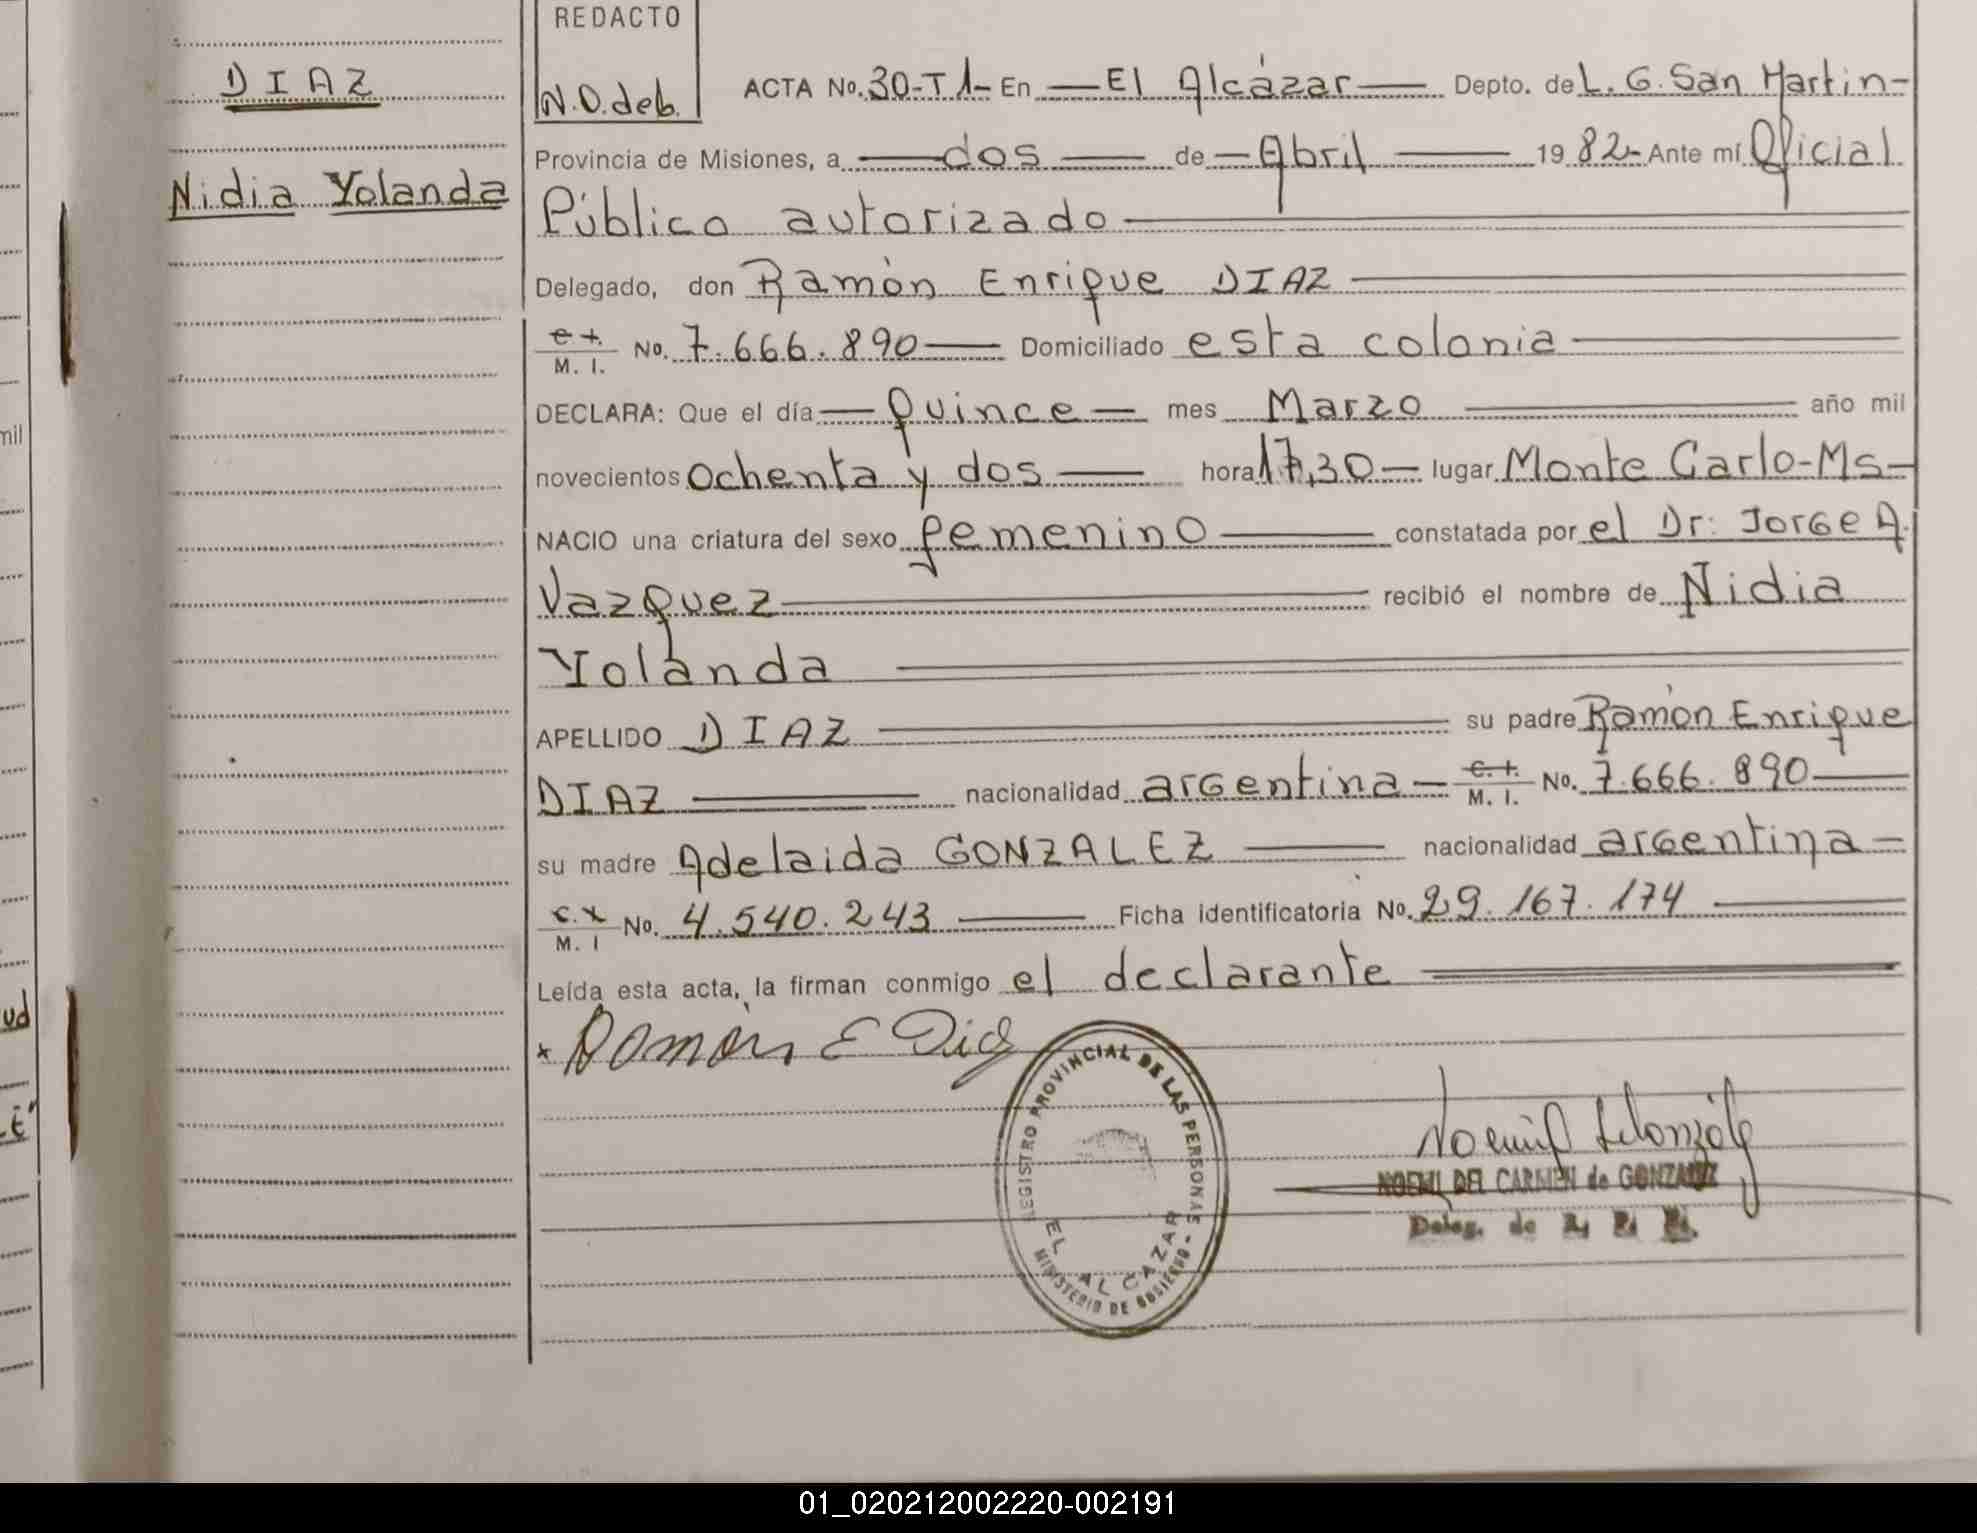 REDACTO
N.D.deb.
DIAZ
Nidia Yolanda
ACTA No. 30-T 1- En El Alcázar Depto. de L. G. San Martin-
Provincia de Misiones, a dos de Abril 19 82- Ante mí Oficial
Público autorizado
Delegado, don Ramón Enrique DIAZ
M. I. No. 7.666.890 Domiciliado esta colonia
DECLARA: Que el día quince mes Marzo año mil
novecientos ochenta y dos hora 17,30 lugar Monte Carlo-Ms-
NACIO una criatura del sexo femenino constatada por el Dr: Jorge A.
Vazquez recibió el nombre de Nidia
Yolanda
APELLIDO DIAZ su padre Ramón Enrique
DIAZ nacionalidad argentina M. I. No. 7.666.890
su madre Adelaida GONZALEZ nacionalidad argentina
M. I No. 4.540.243 Ficha identificatoria No. 29.167.174
Leída esta acta, la firman conmigo el declarante
x Ramón E Diaz
REGISTRO PROVINCIAL DE LAS PERSONAS -
EL ALCAZAR
MINISTERIO DE GOBIERNO
NOEMI DEL CARMEN de GONZALEZ
Deleg. de
mil
ud
01_020212002220-002191